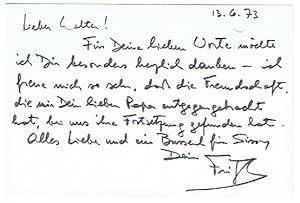 13.6.73
Lieber Walter!
Für Deine lieben Worte möchte
ich Dir besonders herzlich danken – ich
freue mich so sehr, daß die Freundschaft,
die mir Dein lieber Papa entgegengebracht
hat, bei uns ihre Fortsetzung gefunden hat.
Alles Liebe und ein Busserl für Sissy
Dein
Fritz